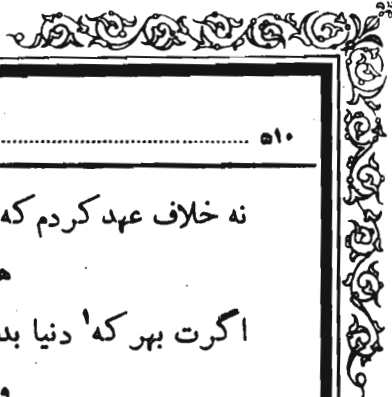 ۵۱۰
نه خلاف عهد کردم که
اگرت بهر که۱ دنیا بد